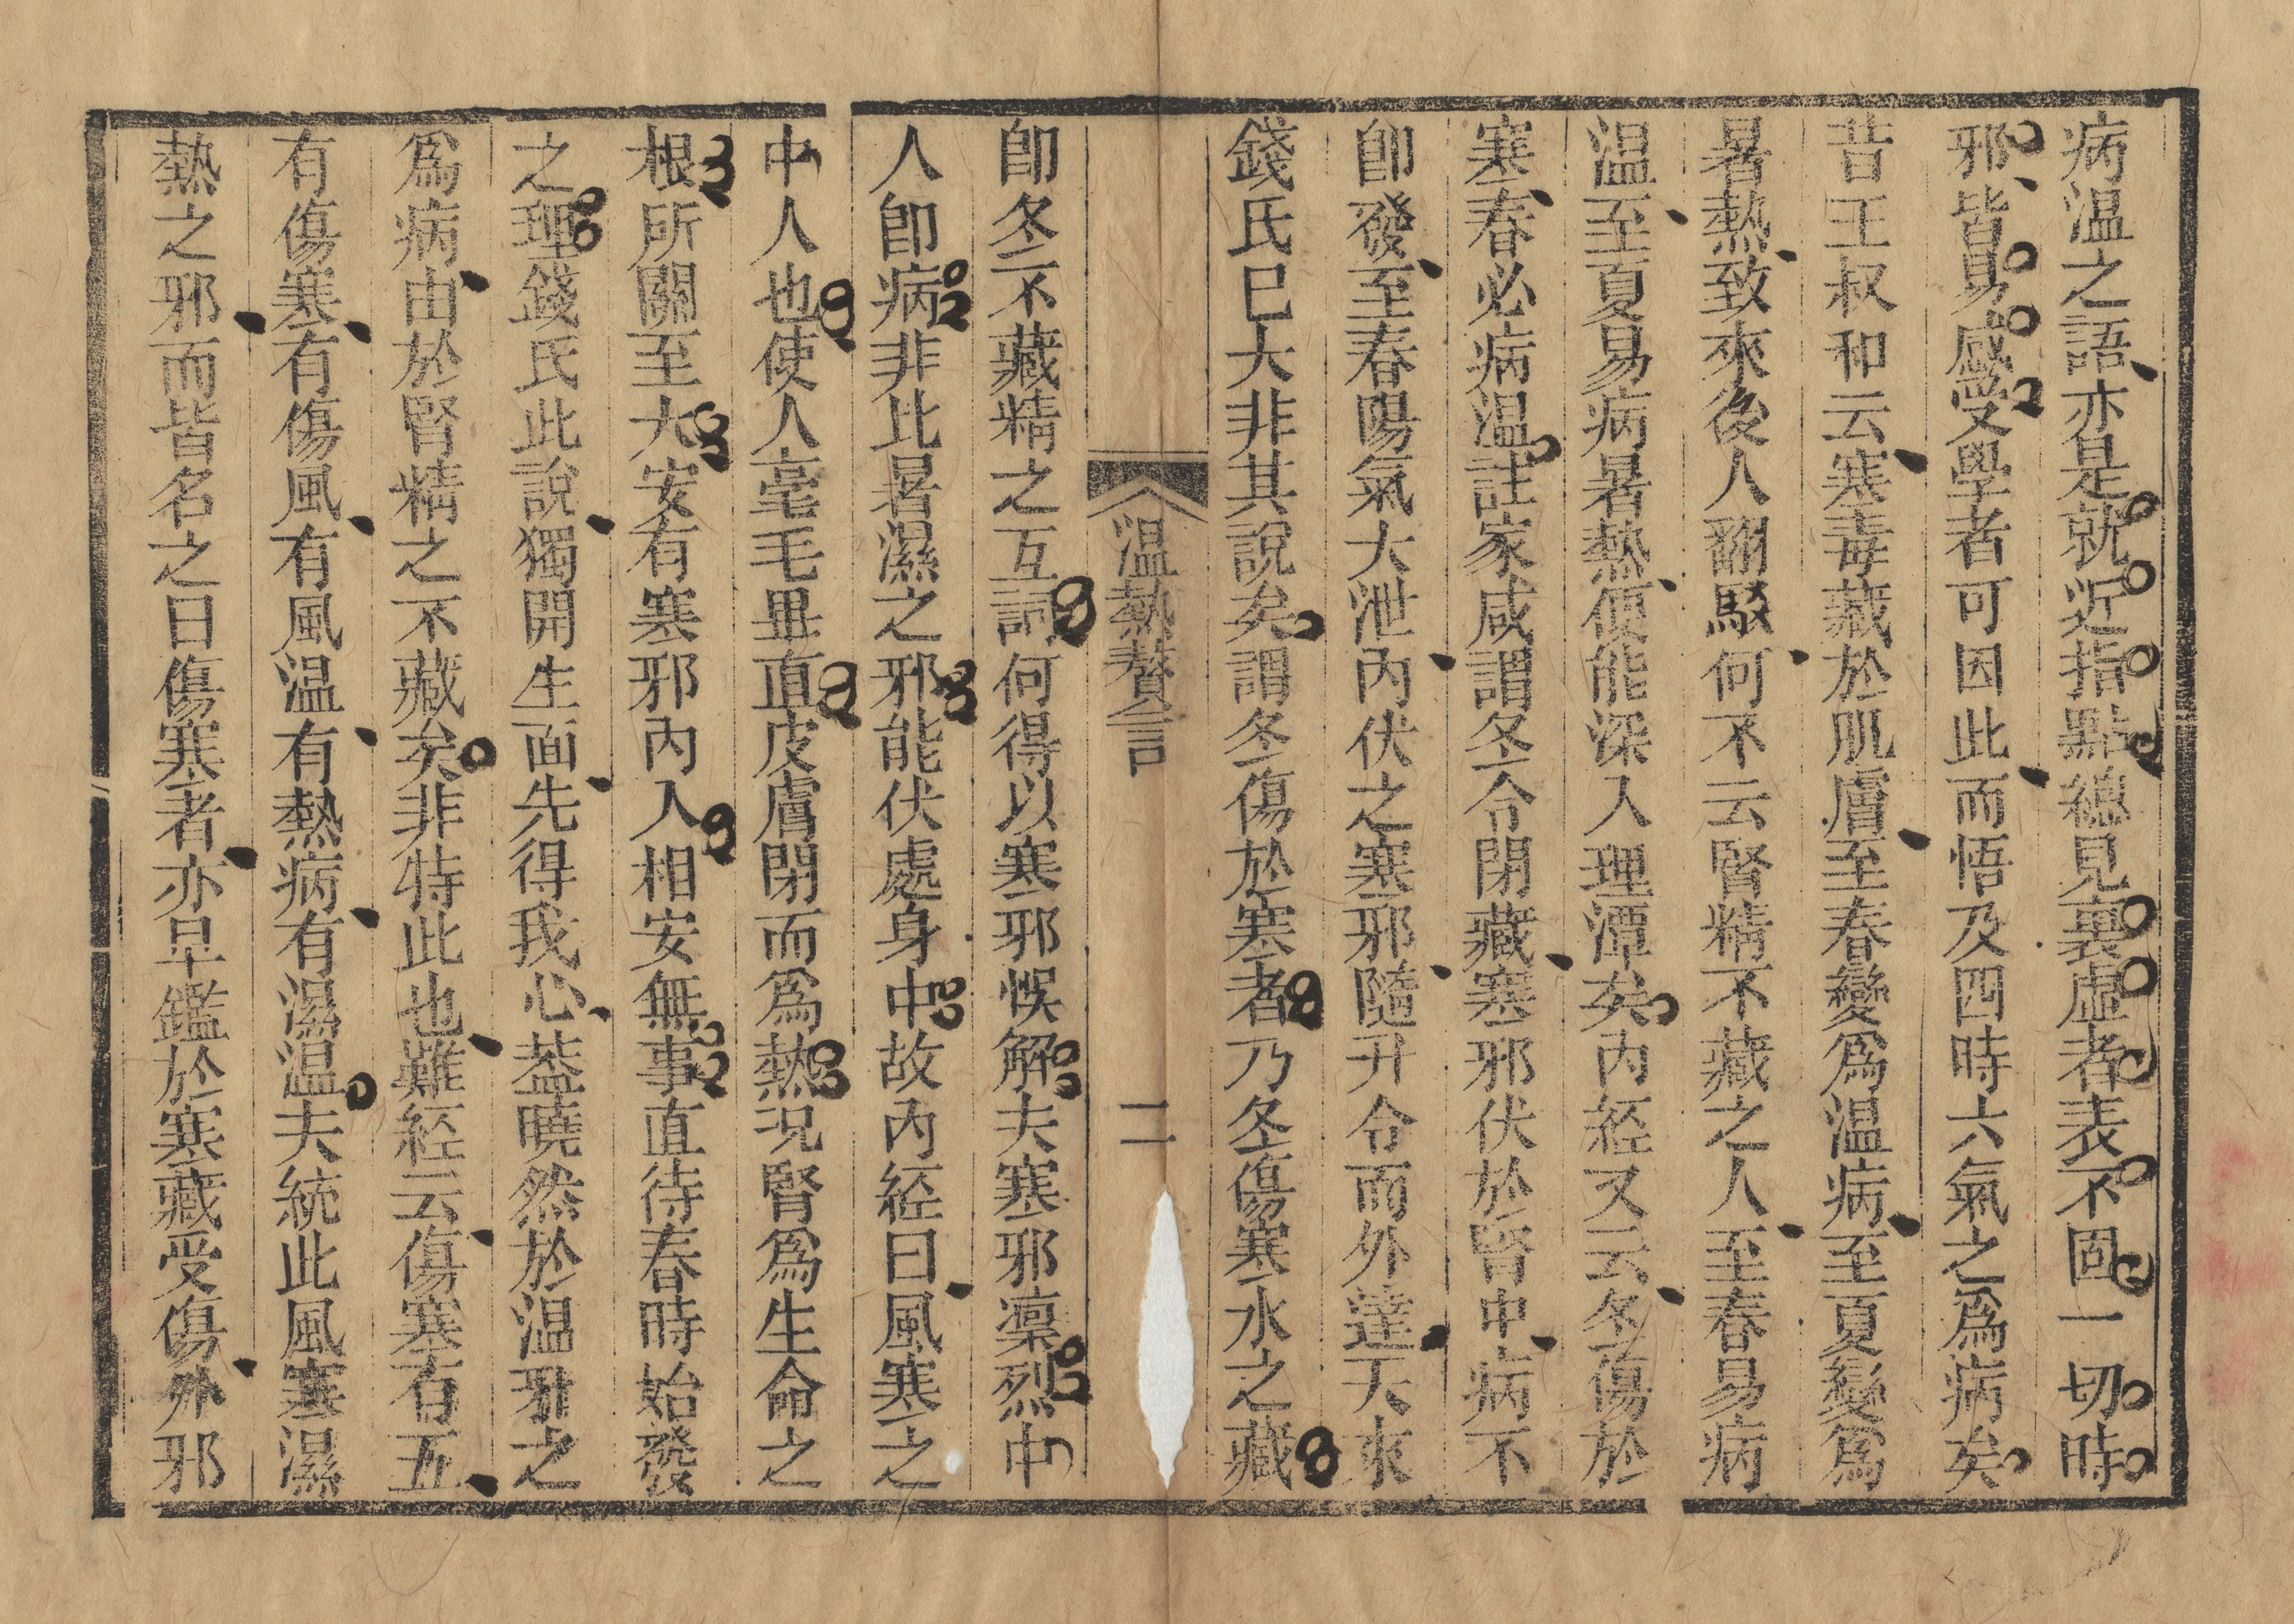 病温之語亦是就近指點總見裏虛者表不固一切時
邪皆易感受學者可因此而悟及四時六氣之爲病矣
昔王叔和云寒毒藏於肌膚至春變爲温病至夏變爲
暑熱致來後人翻駁何不云腎精不藏之人至春易病
温至夏易病暑熱便能深入理潭矣内経又云冬傷於
寒春必病温註家咸謂冬令閉藏寒邪伏於腎中病不
卽發至春陽氣大泄内伏之寒邪隨升令而外達天來
錢氏已大非其說矣謂冬傷於寒者乃冬傷寒水之藏
温熱贅言
二
卽冬不藏精之互詞何得以寒邪悞解夫寒邪凛烈中
人卽病非比暑濕之邪能伏處身中故内経曰風寒之
中人也使人毫毛畢直皮膚閉而爲熱况腎爲生命之
根所關至大安有寒邪内入相安無事直待春時始發
之理錢氏此說獨開生面先得我心葢曉然於温邪之
爲病由於腎精之不藏矣非特此也難経云傷寒有五
有傷寒有傷風有風温有熱病有濕温夫統此風寒濕
熱之邪而皆名之曰傷寒者亦早鑑於寒藏受傷外邪